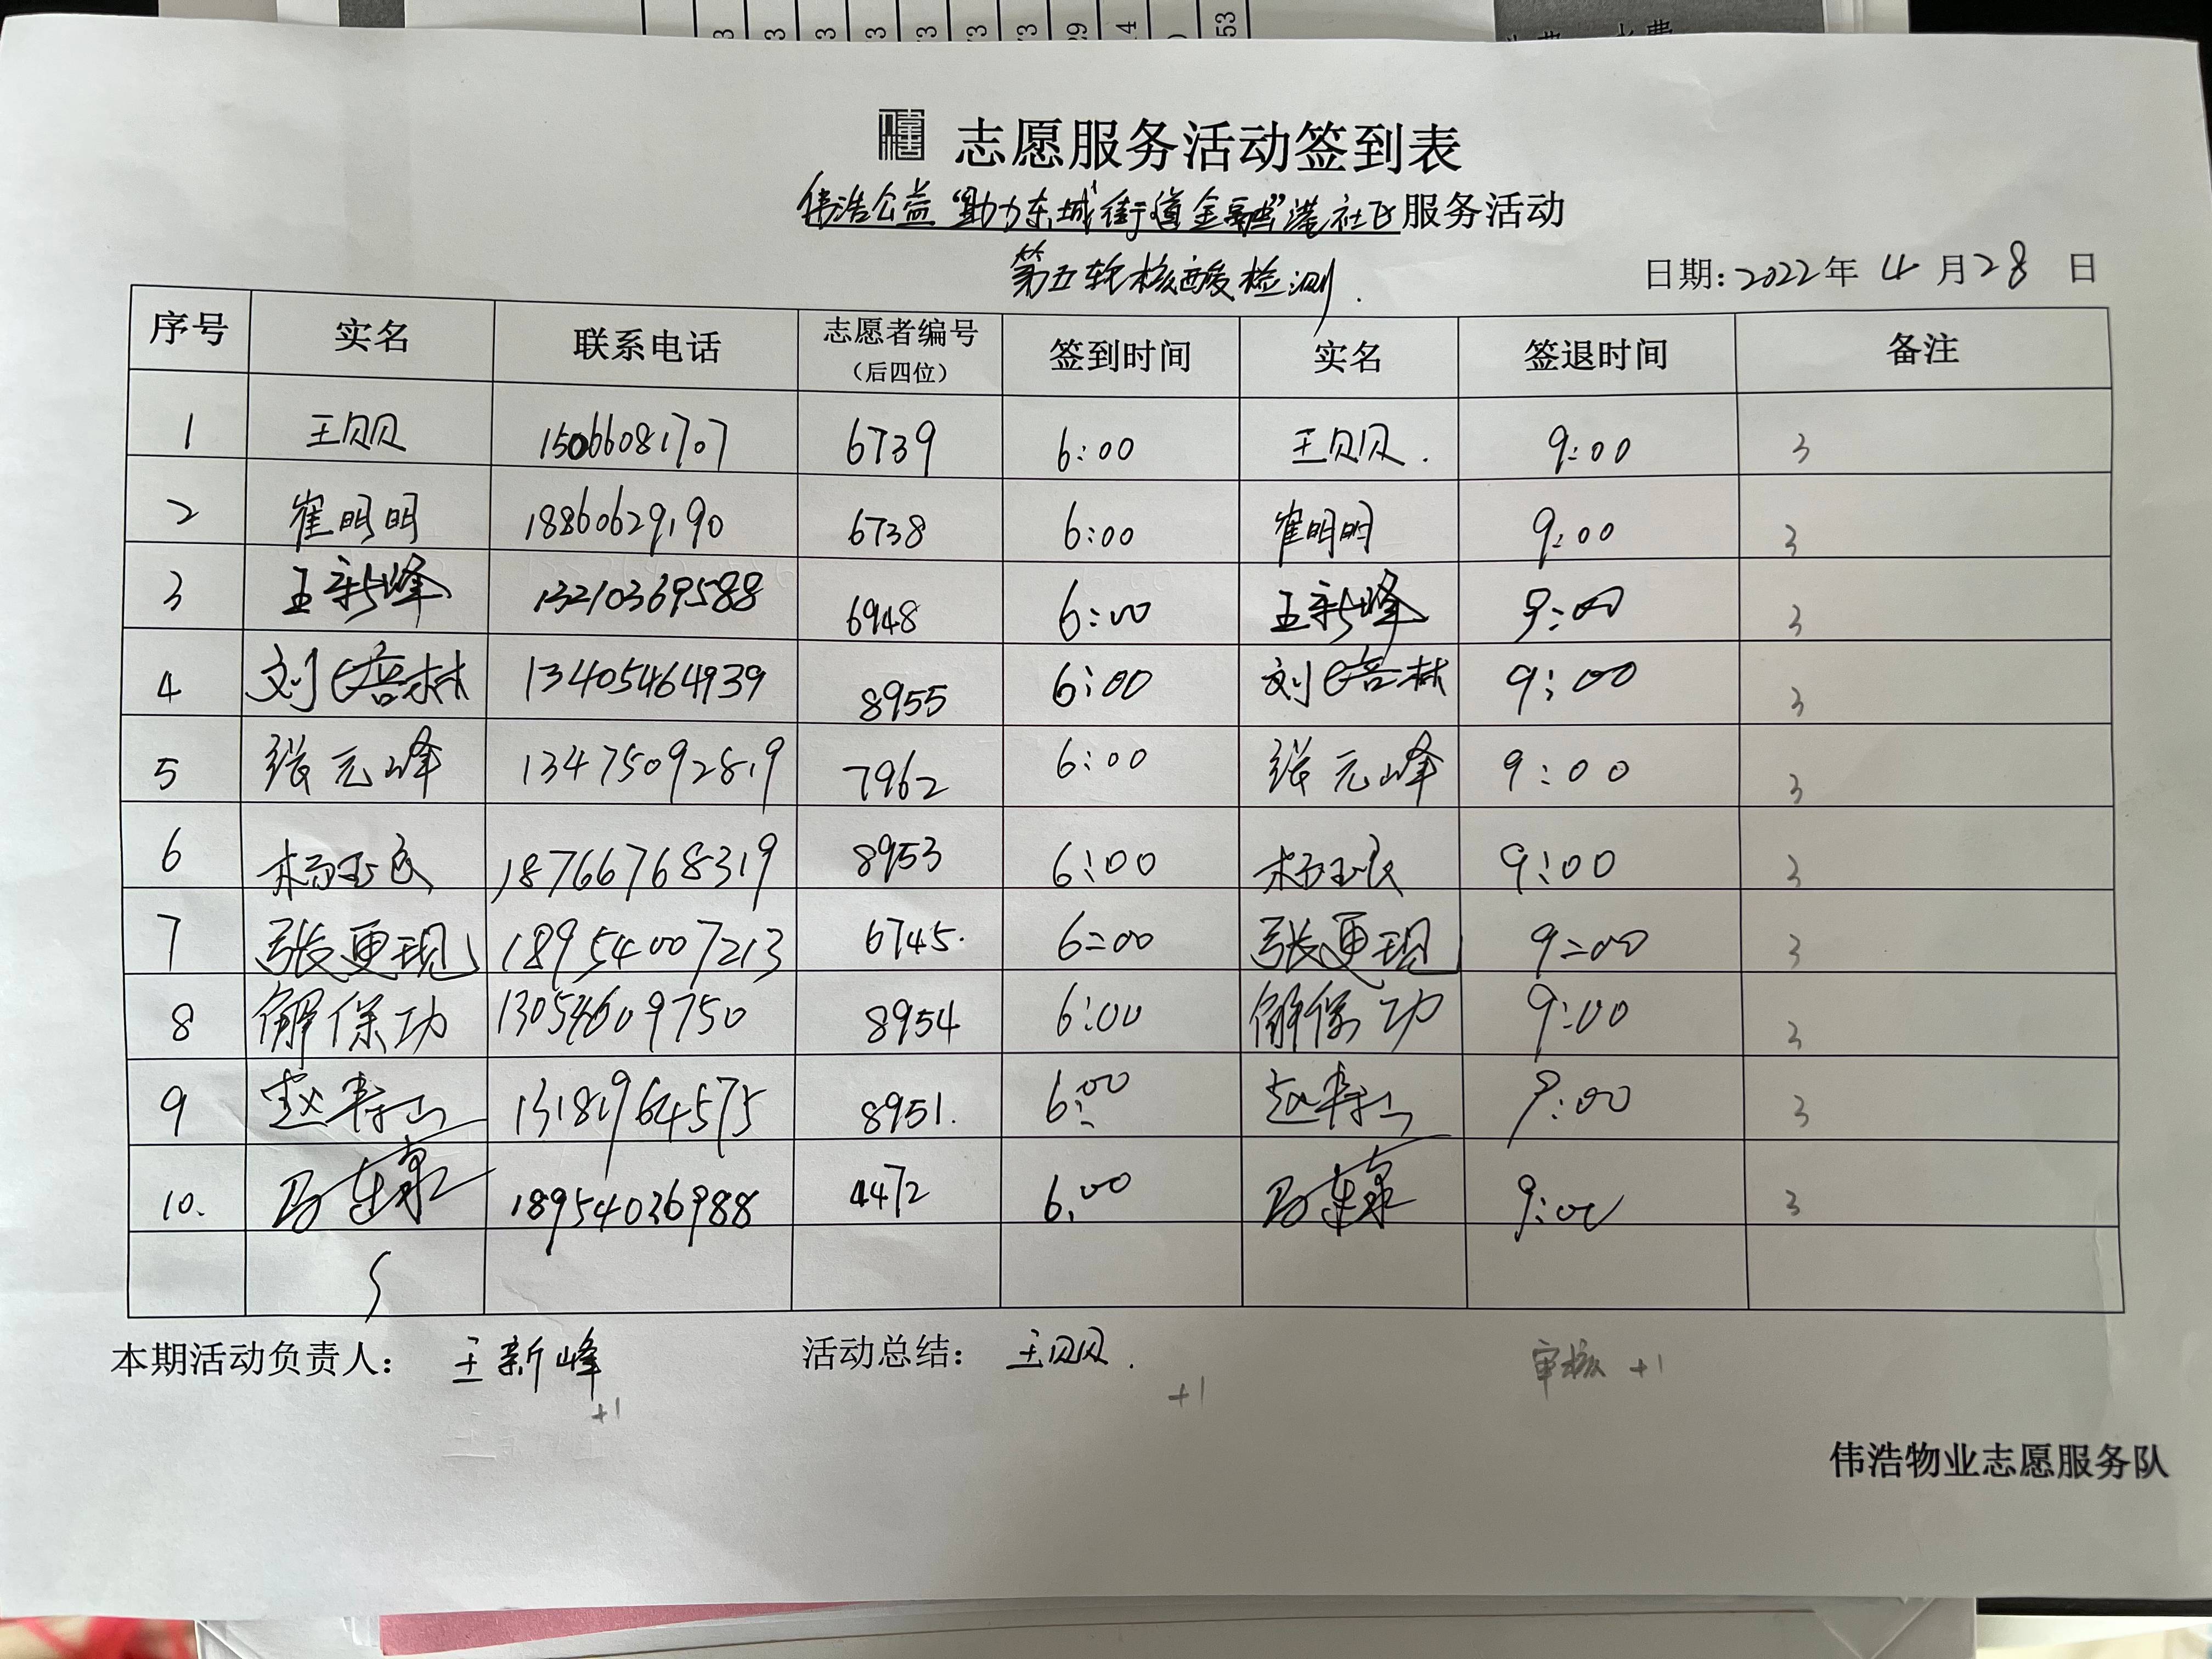 志愿服务活动签到表
伟浩公益“助力东城街道金融”港社区服务活动
第五轮核酸检测.
日期: 2022年 4 月 28 日
序号 实名 联系电话 志愿者编号（后四位） 签到时间 实名 签退时间 备注
1 王贝贝 15066081707 6739 6:00 王贝贝. 9:00 3
2 崔明明 18860629190 6738 6:00 崔明明 9:00 3
3 王新峰 13210369588 6948 6:00 王新峰 9:00 3
4 刘培林 13405464939 8955 6:00 刘培林 9:00 3
5 张元峰 13475092819 7962 6:00 张元峰 9:00 3
6 杨玉民 18766768319 8953 6:00 杨玉民 9:00 3
7 张更现 18954007213 6745. 6:00 张更现 9:00 3
8 解保功 13054609750 8954 6:00 解保功 9:00 3
9 赵寿山 13181964575 8951. 6:00 赵寿山 9:00 3
10. 18954036988 4472 6:00 9:00 3
本期活动负责人: 王新峰 活动总结: 王贝贝. 审核 +1
+1 +1
伟浩物业志愿服务队